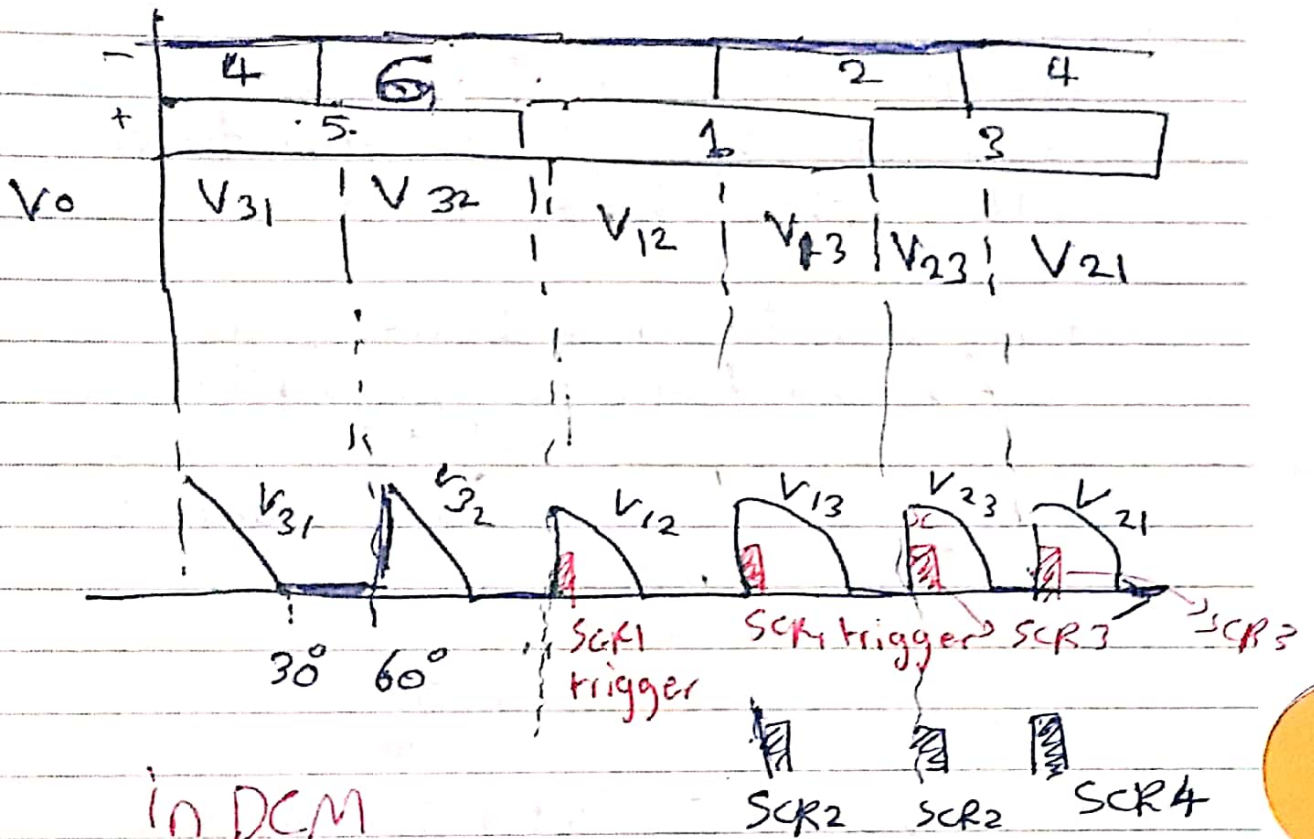 - 4 6 2 4
+ 5 1 3
V0 V31 V32 V12 V13 V23 V21
V31 V32 V12 V13 V23 V21
30° 60° SCR1 trigger SCR1 trigger SCR3 SCR3
SCR2 SCR2 SCR4
in DCM